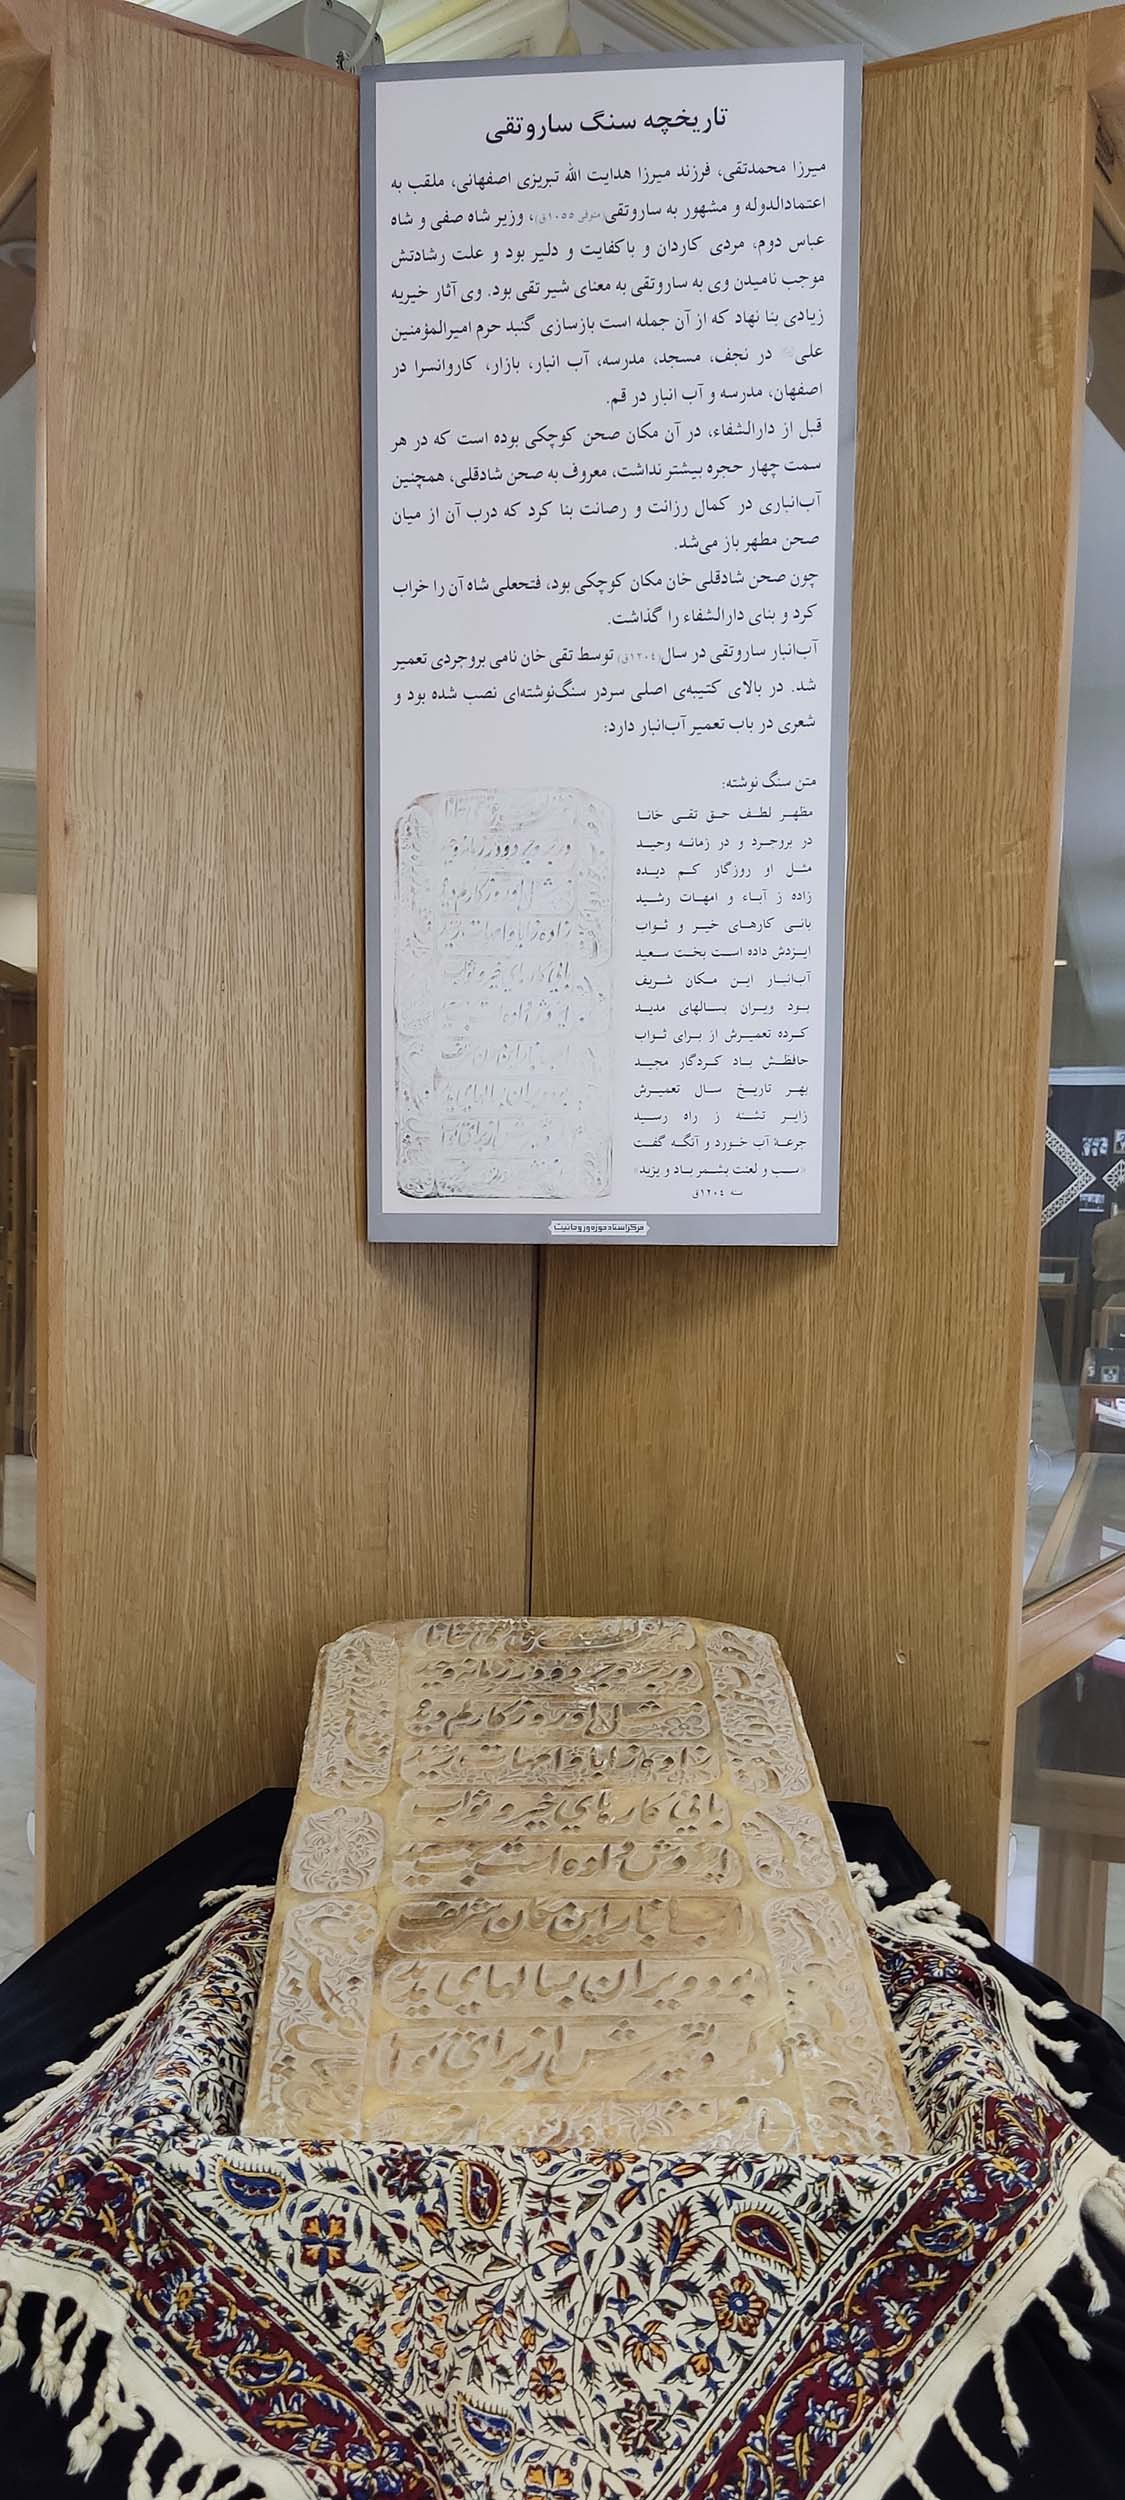 تاریخچه سنگ ساروتقی
میرزا محمدتقی، فرزند میرزا هدایت الله تبریزی اصفهانی، ملقب به
اعتمادالدوله و مشهور به ساروتقی(متوفی ۱۰۵۵ق)، وزیر شاه صفی و شاه
عباس دوم، مردی کاردان و باکفایت و دلیر بود و علت رشادتش
موجب نامیدن وی به ساروتقی به معنای شیر تقی بود. وی آثار خیریه
زیادی بنا نهاد که از آن جمله است بازسازی گنبد حرم امیرالمؤمنین
علی در نجف، مسجد، مدرسه، آب انبار، بازار، کاروانسرا در
اصفهان، مدرسه و آب انبار در قم.
قبل از دارالشفاء، در آن مکان صحن کوچکی بوده است که در هر
سمت چهار حجره بیشتر نداشت، معروف به صحن شادقلی، همچنین
آب‌انباری در کمال رزانت و رصانت بنا کرد که درب آن از میان
صحن مطهر باز می‌شد.
چون صحن شادقلی خان مکان کوچکی بود، فتحعلی شاه آن را خراب
کرد و بنای دارالشفاء را گذاشت.
آب‌انبار ساروتقی در سال(۱۲۰۴ق) توسط تقی خان نامی بروجردی تعمیر
شد. در بالای کتیبه‌ی اصلی سردر سنگ‌نوشته‌ای نصب شده بود و
شعری در باب تعمیر آب‌انبار دارد:
متن سنگ نوشته:
مظهر لطف حق تقی خانا
در بروجرد و در زمانه وحید
مثل او روزگار کم دیده
زاده ز آباء و امهات رشید
بانی کارهای خیر و ثواب
ایزدش داده است بخت سعید
آب‌انبار این مکان شریف
بود ویران بسالهای مدید
کرده تعمیرش از برای ثواب
حافظش باد کردگار مجید
بهر تاریخ سال تعمیرش
زایر تشنه ز راه رسید
جرعهٔ آب خورد و آنگه گفت
«سب و لعنت بشمر باد و یزید»
سنه ۱۲۰۴ق
مرکز اسناد حوزه و روحانیت
در بروجرد و در زمانه وحید
مثل او روزگار کم دیده
زاده ز اباء و امهات رشید
بانی کارهای خیر و ثواب
ایزدش داده است بخت سعید
اب انبار این مکان شریف
بود ویران بسالهای مدید